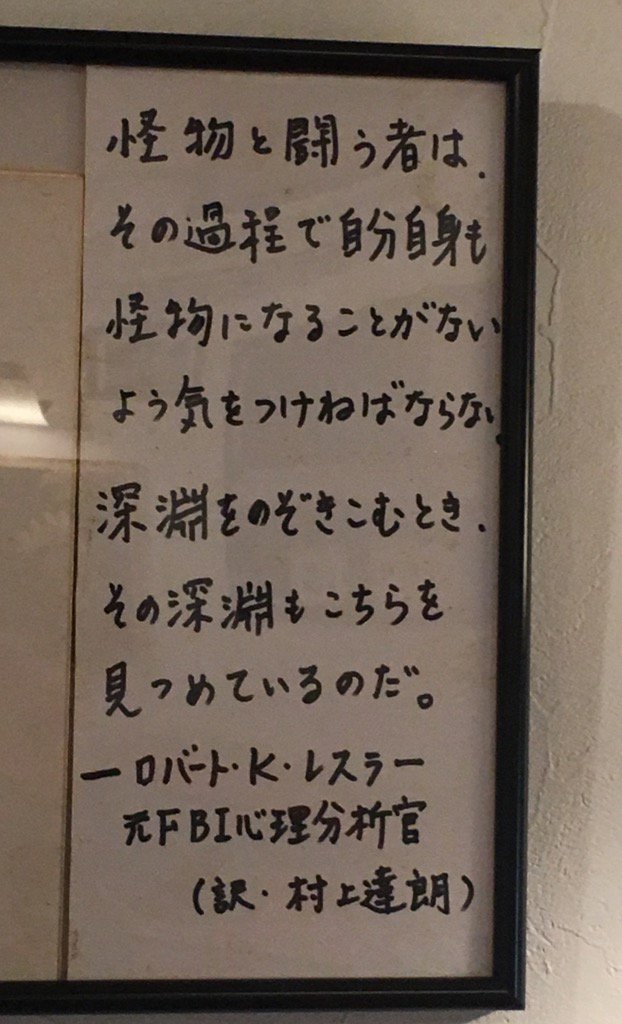 怪物と闘う者は、
その過程で自分自身も
怪物になることがない
よう気をつけねばならない。
深淵をのぞきこむとき、
その深淵もこちらを
見つめているのだ。
ーロバート・K・レスラー
元FBI心理分析官
(訳・村上達朗)